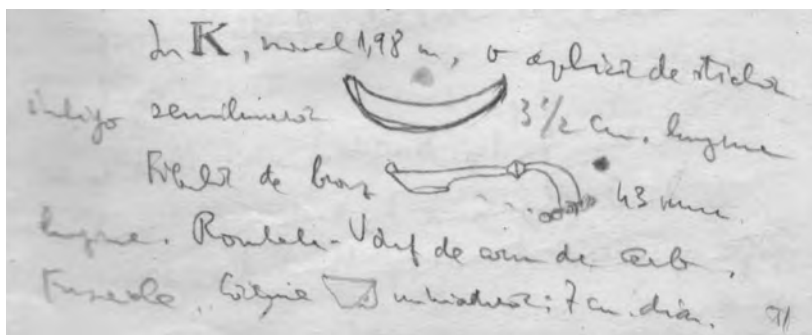 In K, nivel 1,98 m, o aplică de sticlă
indigo semilunară 3 1/2 cm. lungime
Fibulă de bronz 43 mm.
lungime. Rondele - Vârf de corn de cerb.
Fusaiole, miniatură; 7 cm. diam.